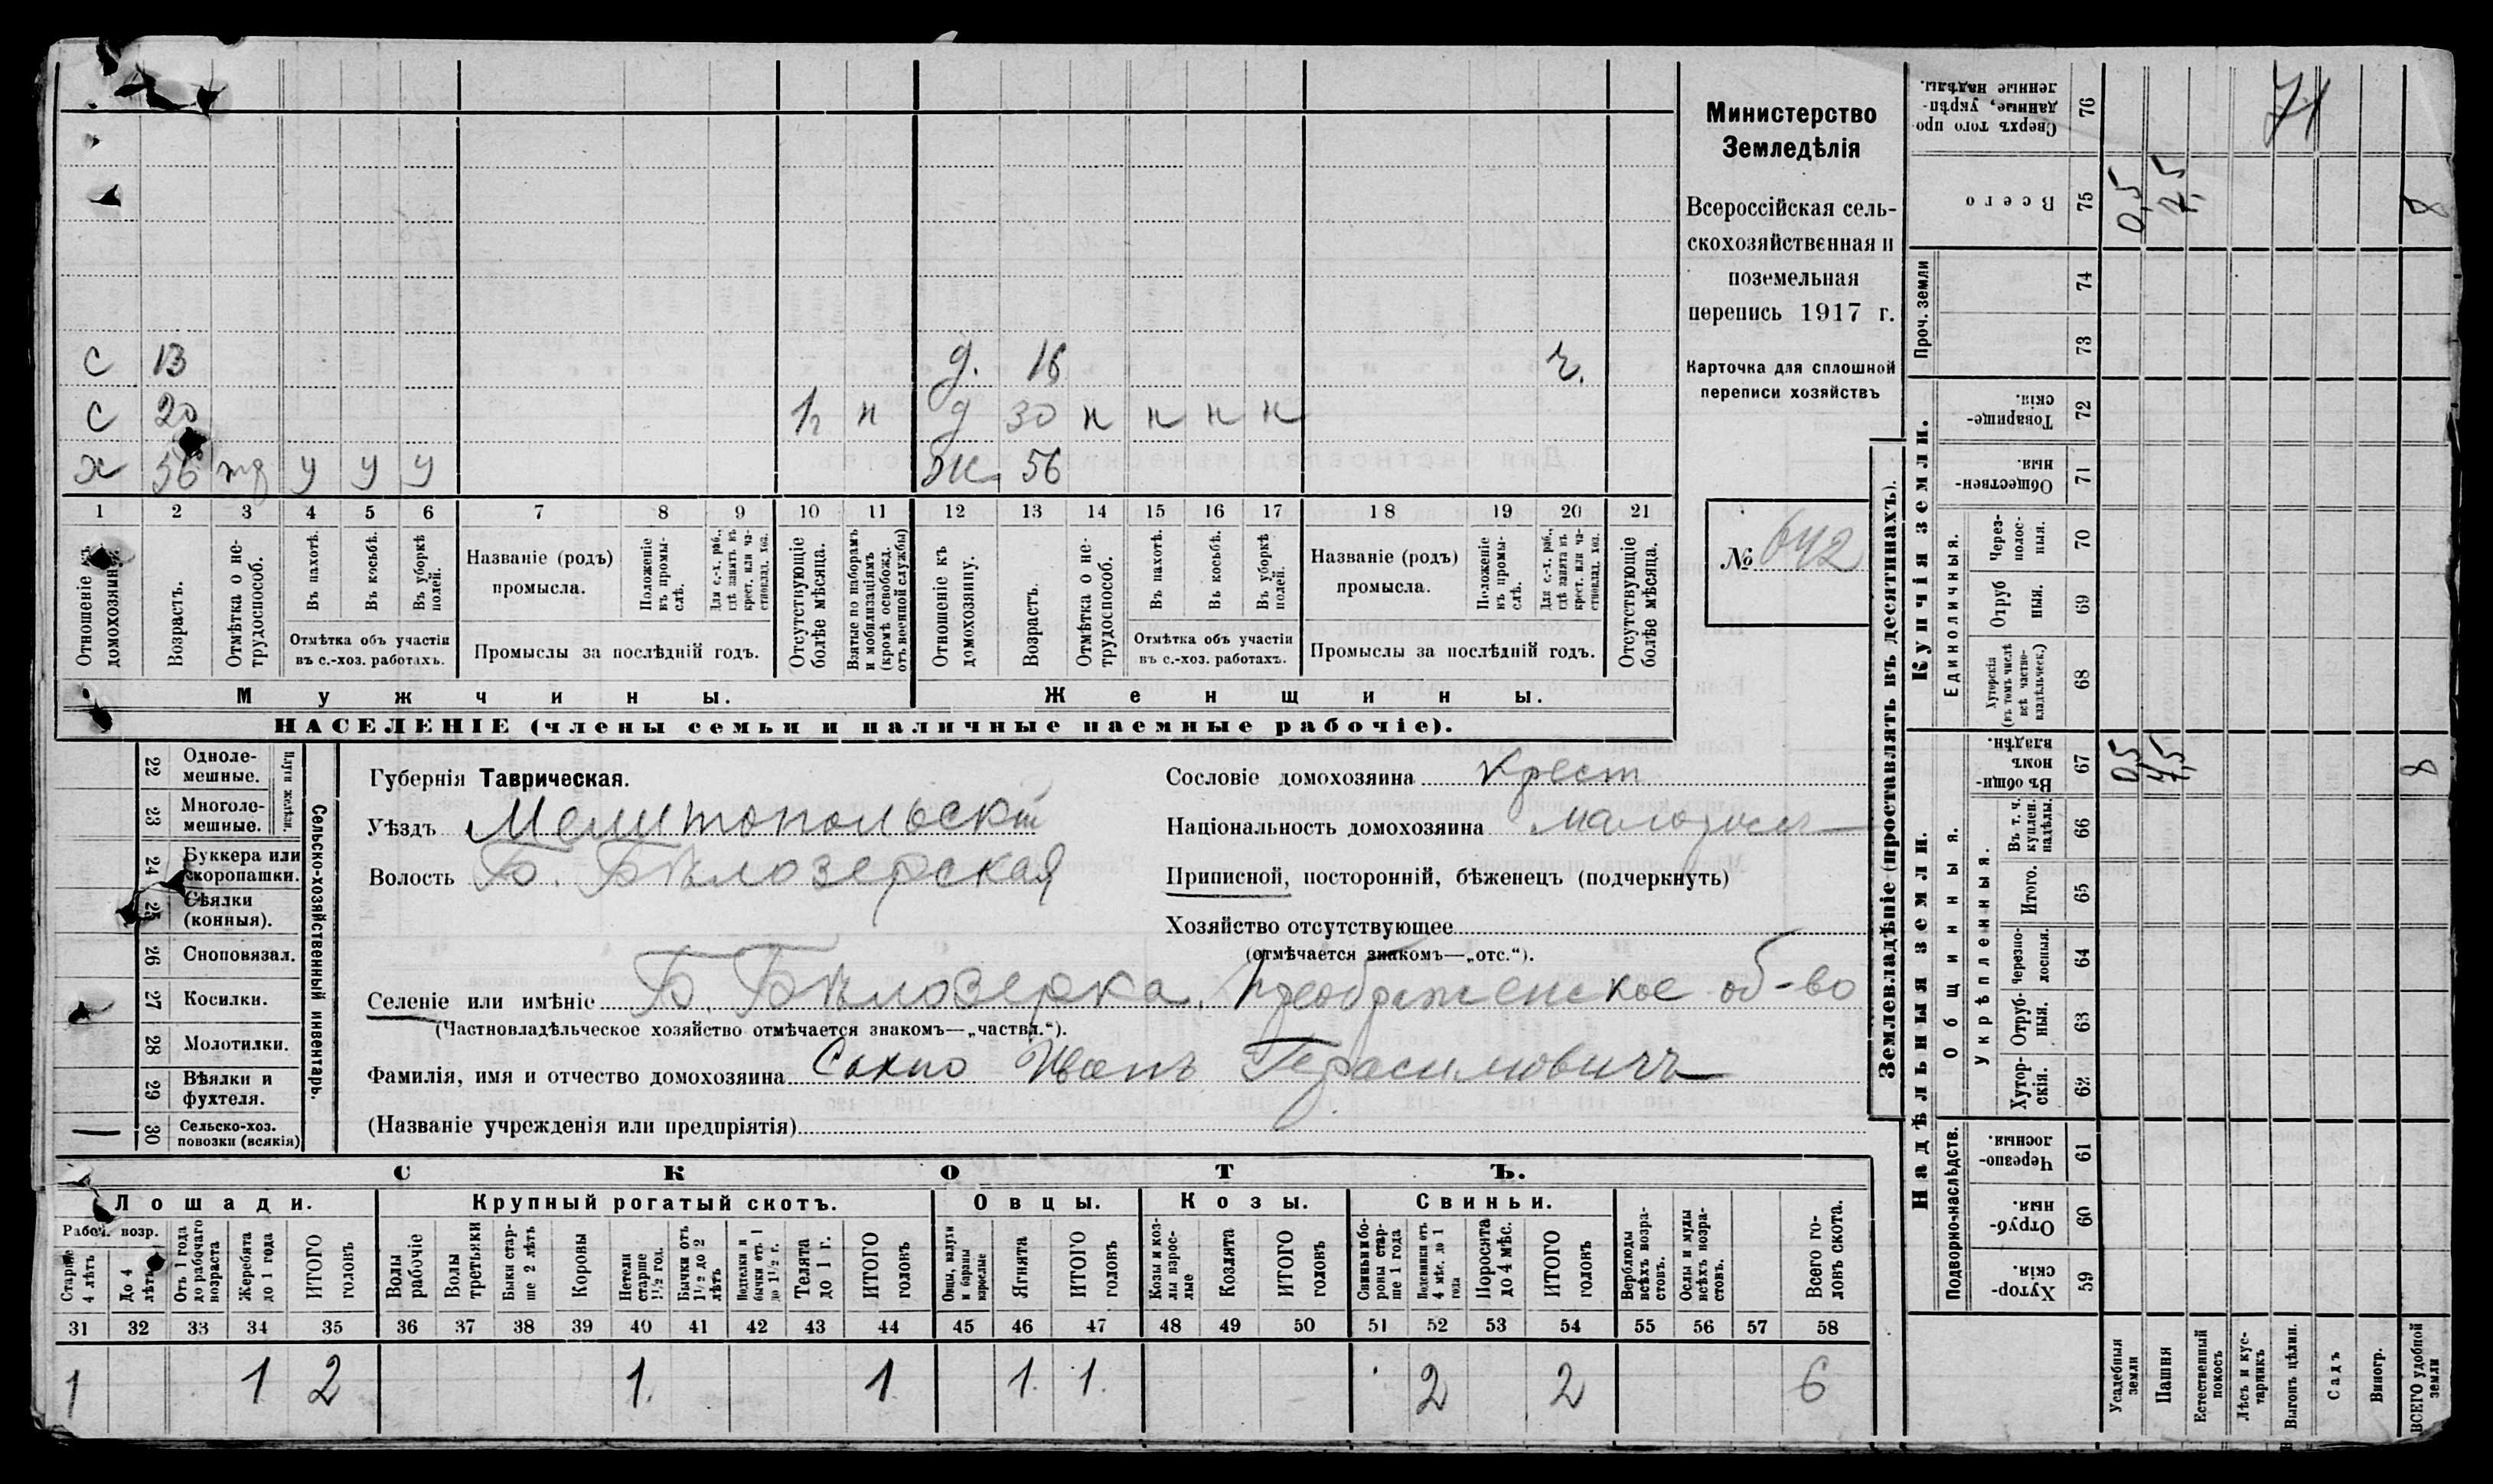 Министерство
Земледѣлія
Всероссійская сель-
скохозяйственная и
поземельная
перепись 1917 г.
Карточка для сплошной
переписи хозяйствъ
№ 642
с 13 д. 16 г.
с 20 н д 30 н н н н
х 56 у у у ж. 56
1 2 3 4 5 6 7 8 9 10 11 12 13 14 15 16 17 18 19 20 21
Отношеніе къ домохозяину.
Возрастъ.
Отмѣтка о не-трудоспособ.
Въ пахотѣ.
Въ косьбѣ.
Въ уборкѣ полей.
Отмѣтка объ участіи
въ с.-хоз. работахъ.
Названіе (родъ)
промысла.
Положеніе въ промы-слѣ.
Для с.-х. раб., гдѣ занятъ въ крест. или ча-стновлад. хоз.
Промыслы за послѣдній годъ.
Отсутствующіе болѣе мѣсяца.
Взятые по наборамъ и мобилизаціямъ (кромѣ освобожд. отъ военной службы)
Отношеніе къ домохозяину.
Возрастъ.
Отмѣтка о не-трудоспособ.
Въ пахотѣ.
Въ косьбѣ.
Въ уборкѣ полей.
Отмѣтка объ участіи
въ с.-хоз. работахъ.
Названіе (родъ)
промысла.
Положеніе въ промы-слѣ.
Для с.-х. раб., гдѣ занятъ въ крест. или ча-стновлад. хоз.
Промыслы за послѣдній годъ.
Отсутствующіе болѣе мѣсяца.
Мужчины. Женщины.
НАСЕЛЕНІЕ (члены семьи и наличные наемные рабочіе).
22 Одноле-мешные.
23 Многоле-мешные.
Плуги желѣзн.
24 Буккера или скоропашки.
25 Сѣялки (конныя).
26 Сноповязал.
27 Косилки.
28 Молотилки.
29 Вѣялки и фухтеля.
30 Сельско-хоз. повозки (всякія)
Сельско-хозяйственный инвентарь.
Губернія Таврическая.
Уѣздъ Мелитопольскій
Волость Б. Бѣлозерская
Сословіе домохозяина крест
Національность домохозяина малоросс
Приписной, посторонній, бѣженецъ (подчеркнуть)
Хозяйство отсутствующее
(отмѣчается знакомъ—„отс.“).
Селеніе или имѣніе Б. Бѣлозерка, Преображенское об-во
(Частновладѣльческое хозяйство отмѣчается знакомъ—„частвл.“).
Фамилія, имя и отчество домохозяина Сахно Иванъ Герасимовичъ
(Названіе учрежденія или предпріятія)
СКОТЪ.
Лошади. Крупный рогатый скотъ. Овцы. Козы. Свиньи.
Рабоч. возр.
Старше 4 лѣтъ
До 4 лѣтъ
Отъ 1 года до рабочаго возраста
Жеребята до 1 года
ИТОГО головъ
Волы рабочіе
Волы третьяки
Быки стар-ше 2 лѣтъ
Коровы
Нетели старше 1½ год.
Бычки отъ 1½ до 2 лѣтъ
Подтелки и бычки отъ 1 до 1½ г.
Телята до 1 г.
ИТОГО головъ
Овцы, валухи и бараны взрослые
Ягнята
ИТОГО головъ
Козы и коз-лы взрос-лые
Козлята
ИТОГО головъ
Свиньи и бо-ровы стар-ше 1 года
Подсвинки отъ 4 мѣс. до 1 года
Поросята до 4 мѣс.
ИТОГО головъ
Верблюды всѣхъ возра-стовъ.
Ослы и мулы всѣхъ возра-стовъ.
Всего го-ловъ скота.
31 32 33 34 35 36 37 38 39 40 41 42 43 44 45 46 47 48 49 50 51 52 53 54 55 56 57 58
1 1 2 1. 1. 1. 1. 2 2 6
Землевладѣніе (проставлять въ десятинахъ).
Надѣльныя земли. Купчія земли. Проч. земли
Сверхъ того про-данные, укрѣп-ленные надѣлы. 76 71
Всего 75 0,5 7,5 8
74
73
Товарище-скія. 72
Обществен-ныя. 71
Единоличныя.
Через-полос-ныя. 70
Отруб ныя. 69
Хуторскія (въ томъ числѣ всѣ частно-владѣльческ.) 68
Въ общи-номъ владѣн. 67 0,5 7,5 8
Общинныя.
Укрѣпленныя.
Въ т. ч. куплен. надѣлы. 66
Итого. 65
Черезпо-лосныя. 64
Отруб-ныя. 63
Хутор-скія. 62
Подворно-наслѣдств.
Черезпо-лосныя. 61
Отруб-ныя 60
Хутор-скія. 59
Усадебныя земли
Пашня
Естественный покосъ
Лѣсъ и кус-тарникъ
Выгонъ цѣлин.
Садъ
Виногр.
ВСЕГО удобной земли